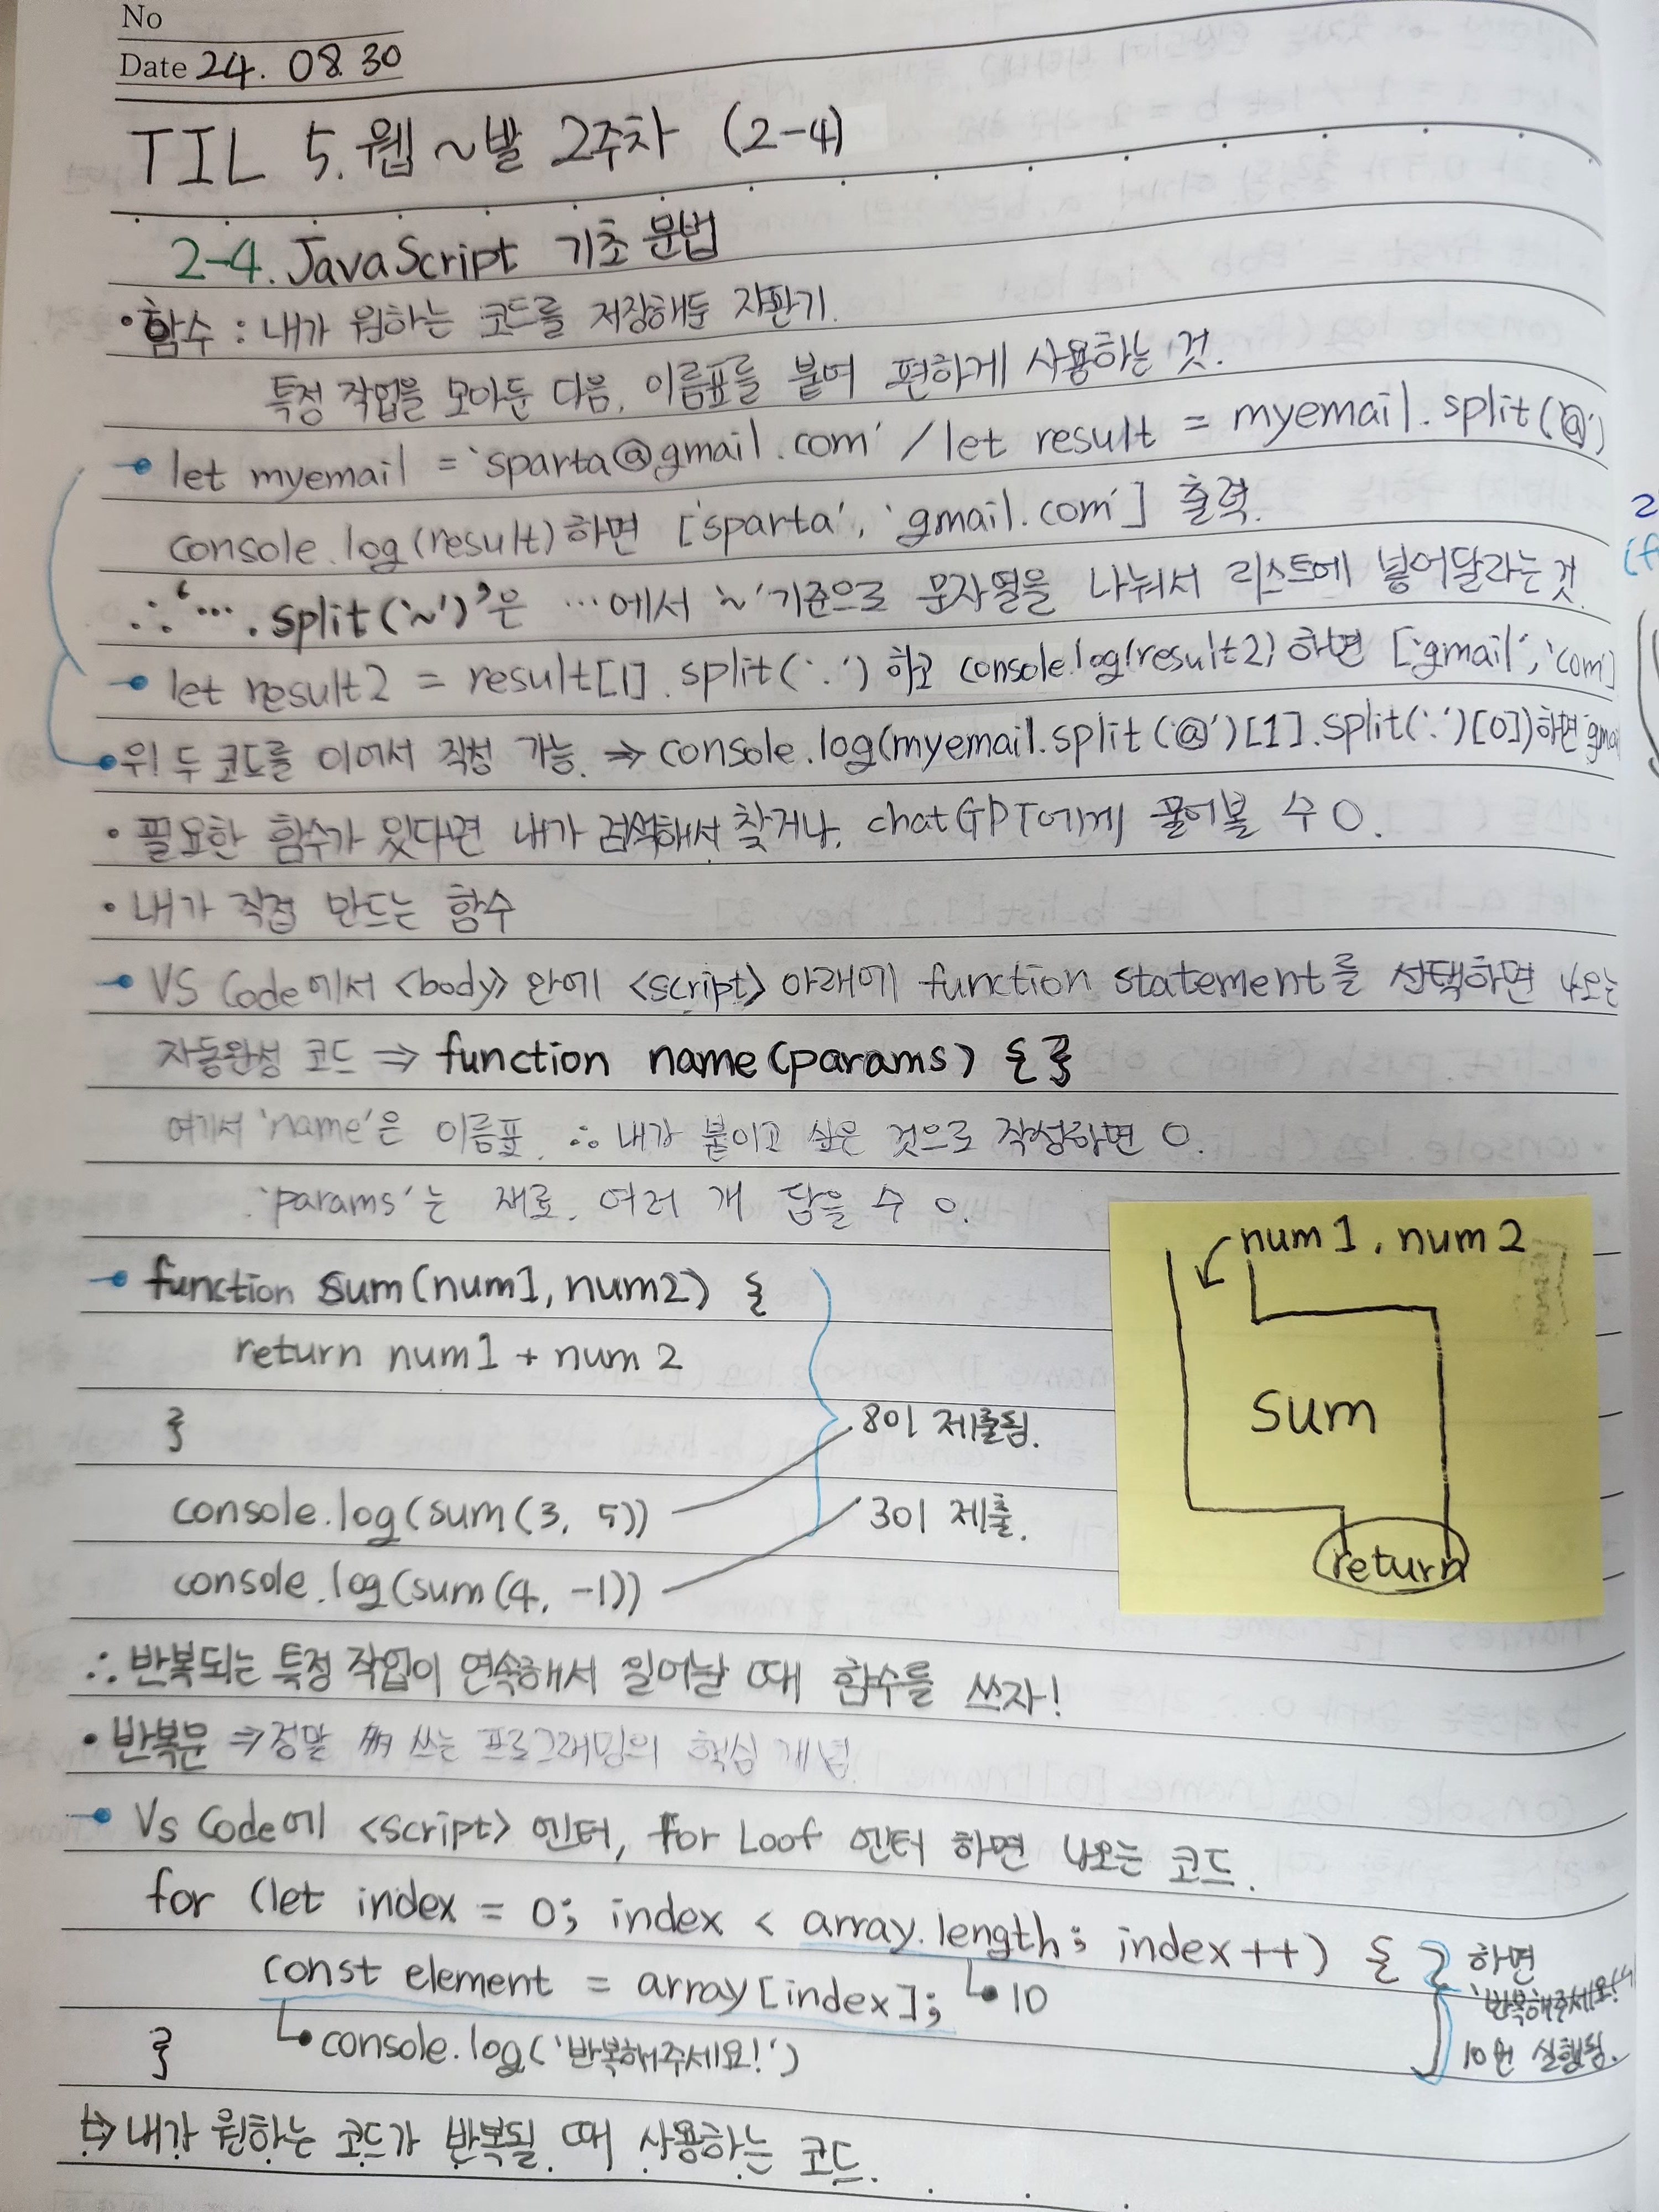 No
Date 24. 08. 30
TIL 5. 웹~발 2주차 (2-4)
2-4. JavaScript 기초 문법
• 함수 : 내가 원하는 코드를 저장해둔 자판기.
특정 작업을 모아둔 다음, 이름표를 붙여 편하게 사용하는 것.
let myemail = 'sparta@gmail.com' / let result = myemail.split('@')
console.log(result) 하면 ['sparta', 'gmail.com'] 출력.
∴ '… .split('~')'은 …에서 '~'기준으로 문자열을 나눠서 리스트에 넣어달라는 것.
let result2 = result[1].split('.') 하고 console.log(result2) 하면 ['gmail', 'com']
위 두 코드를 이어서 작성 가능. ⇒ console.log(myemail.split('@')[1].split('.')[0]) 하면
• 필요한 함수가 있다면 내가 검색해서 찾거나, chatGPT에게 물어볼 수 O.
• 내가 직접 만드는 함수
VS Code에서 <body> 안에 <script> 아래에 function statement를 선택하면 나오는
자동완성 코드 ⇒ function name(params) { }
여기서 'name'은 이름표. ∴ 내가 붙이고 싶은 것으로 작성하면 O.
'params'는 재료. 여러 개 담을 수 O.
function sum(num1, num2) {
return num1 + num2
}
8이 제출됨.
console.log(sum(3, 5))
3이 제출.
console.log(sum(4, -1))
num1, num2
sum
return
∴ 반복되는 특정 작업이 연속해서 일어날 때 함수를 쓰자!
• 반복문 ⇒ 정말 쓰는 프로그래밍의 핵심 개념.
Vs Code에 <script> 엔터, for Loof 엔터 하면 나오는 코드.
for (let index = 0; index < array.length; index++) {
const element = array[index];
10
}
console.log('반복해주세요!')
하면
'반복해주세요!'
10번 실행됨.
↳ 내가 원하는 코드가 반복될 때 사용하는 코드.